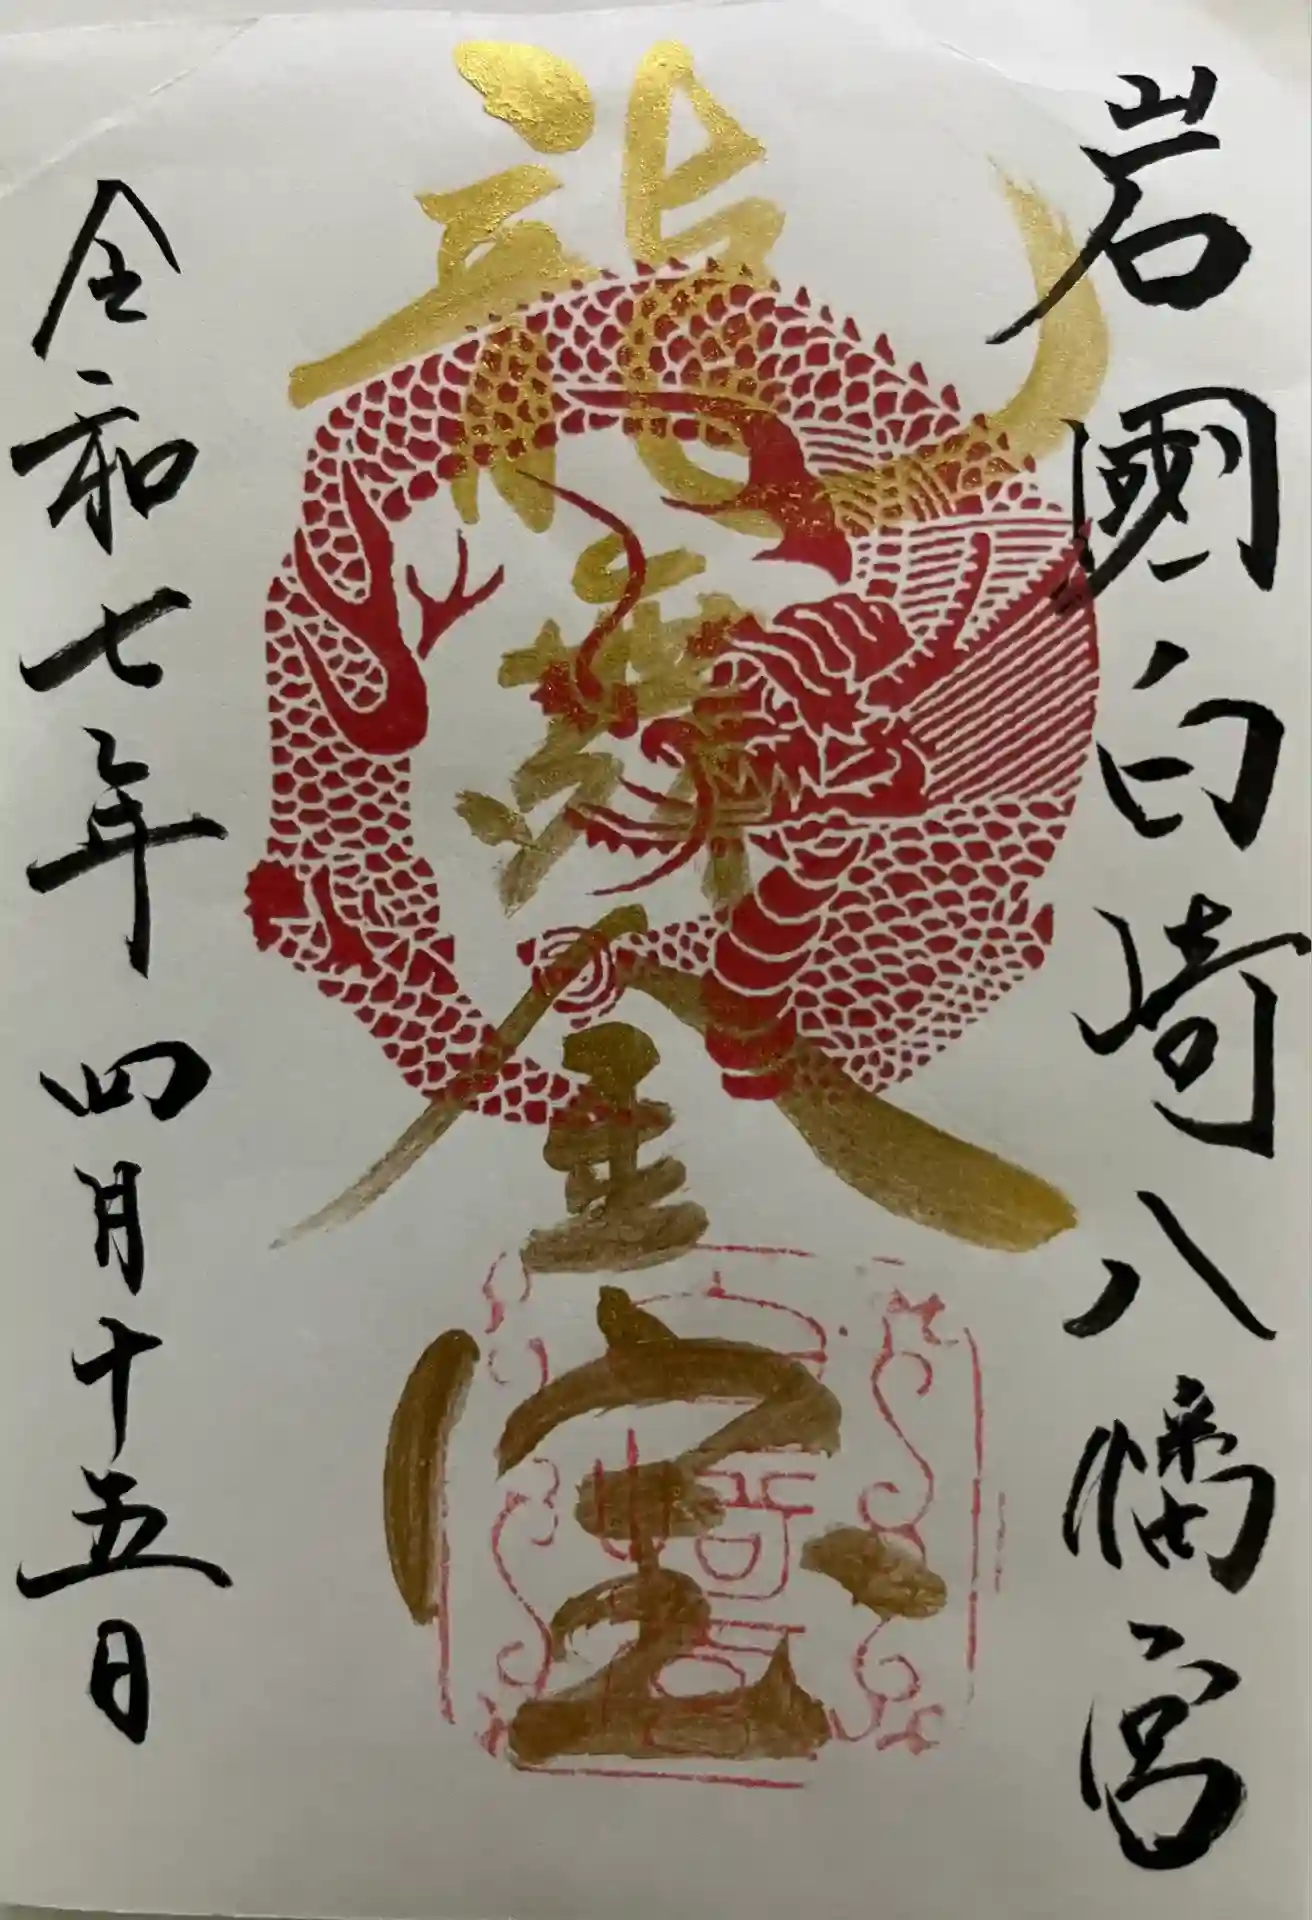 岩國白崎八幡宮
龍舞金宝
令和七年四月十五日